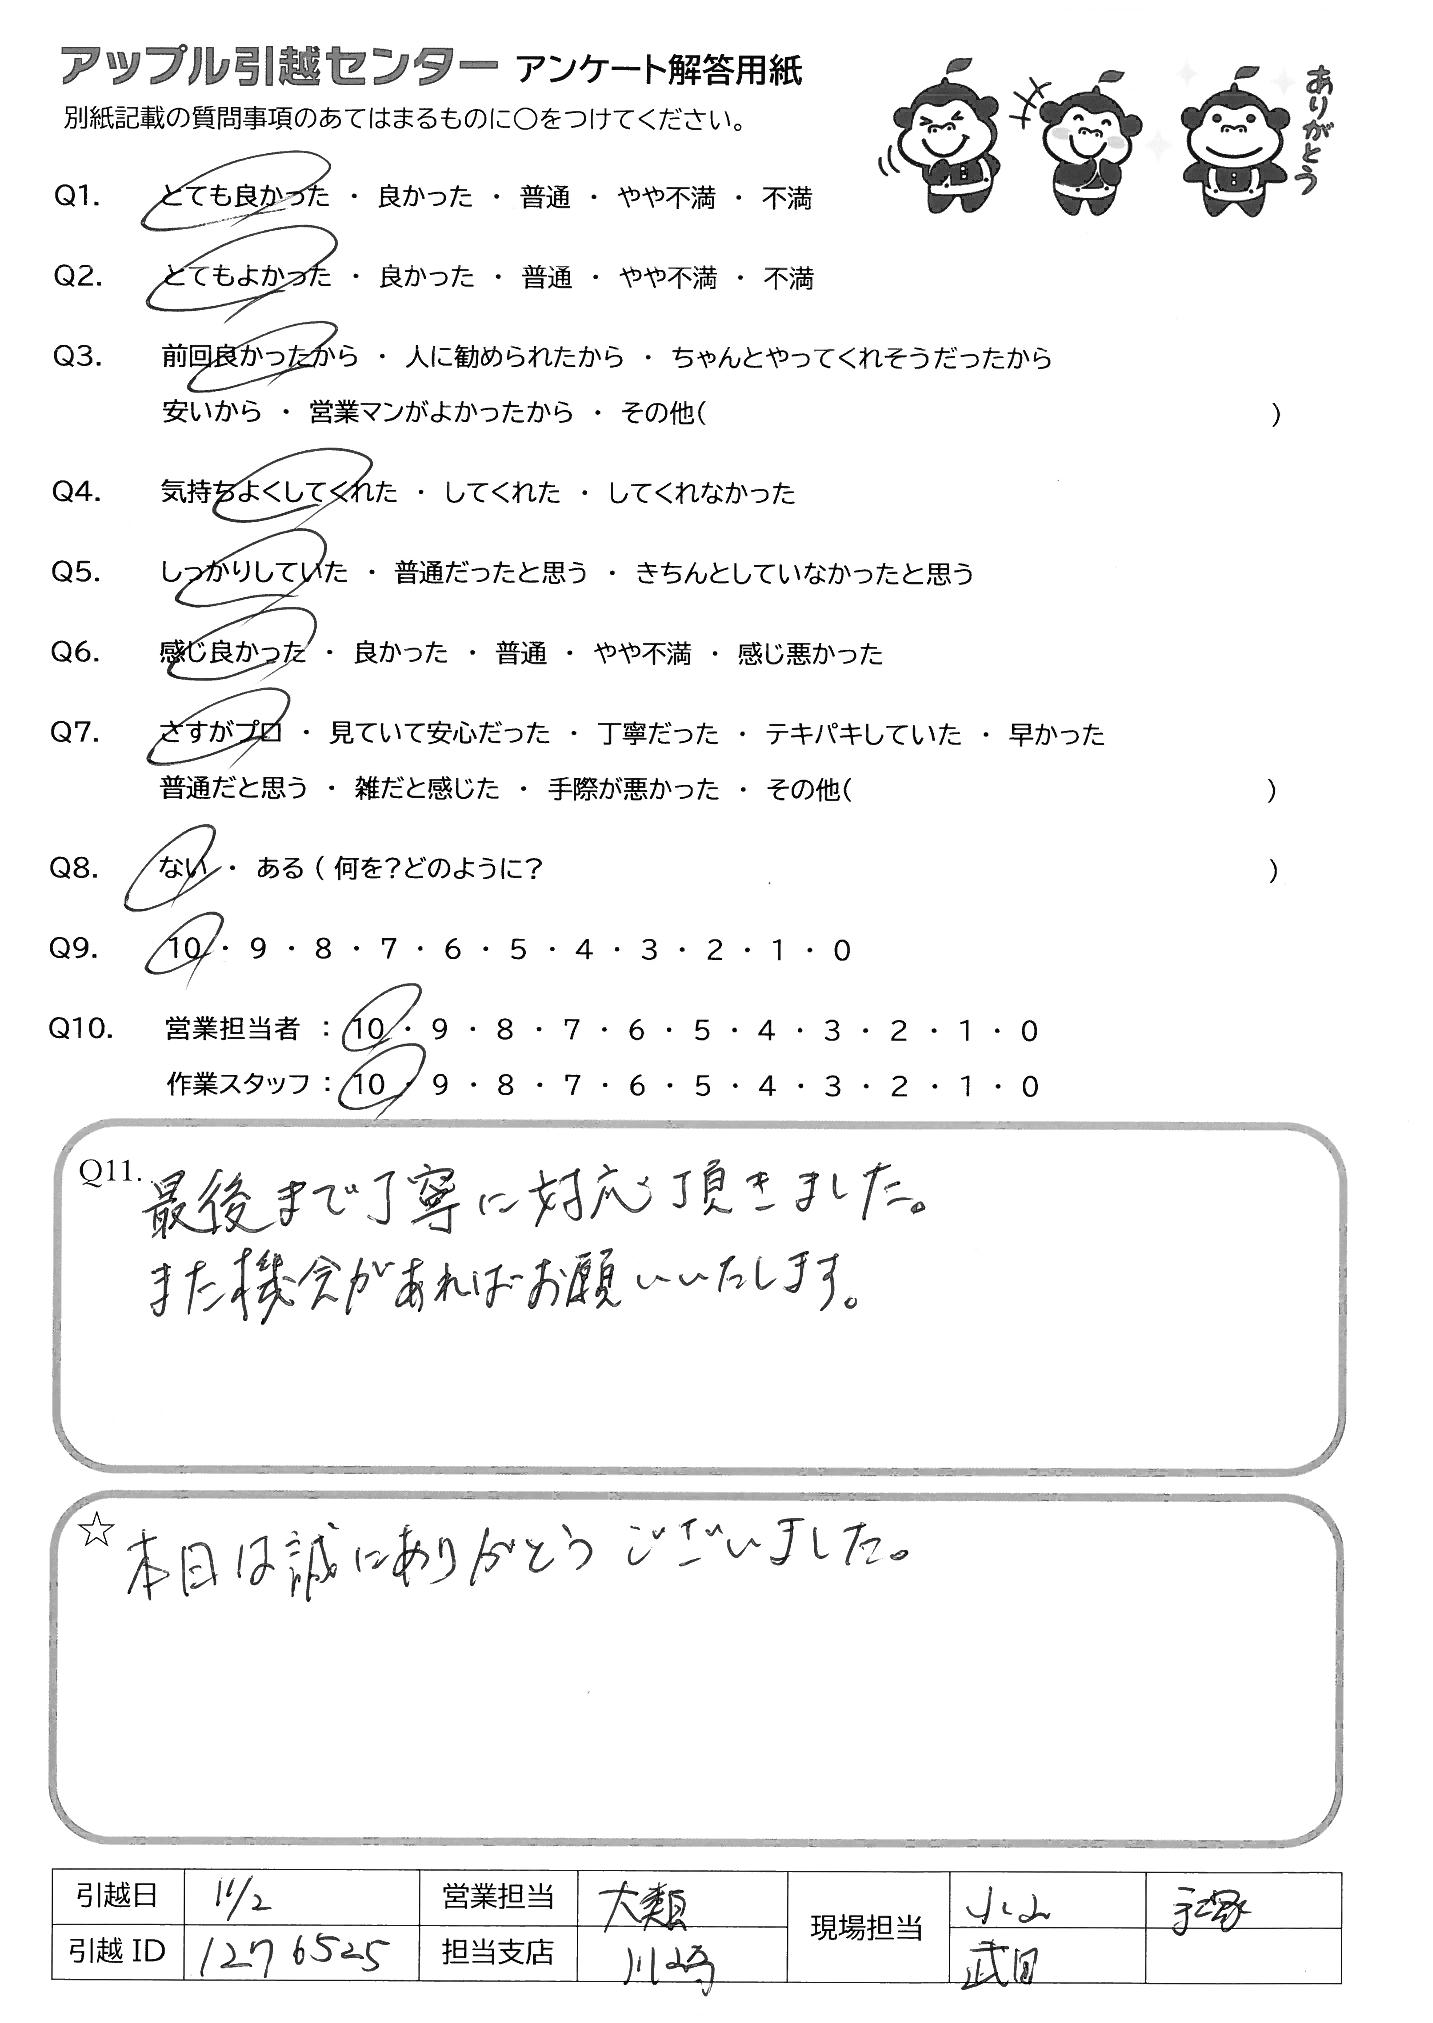 アップル引越センター アンケート解答用紙
別紙記載の質問事項のあてはまるものに○をつけてください。
ありがとう
Q1. とても良かった ・ 良かった ・ 普通 ・ やや不満 ・ 不満
Q2. とてもよかった ・ 良かった ・ 普通 ・ やや不満 ・ 不満
Q3. 前回良かったから ・ 人に勧められたから ・ ちゃんとやってくれそうだったから
安いから ・ 営業マンがよかったから ・ その他( )
Q4. 気持ちよくしてくれた ・ してくれた ・ してくれなかった
Q5. しっかりしていた ・ 普通だったと思う ・ きちんとしていなかったと思う
Q6. 感じ良かった ・ 良かった ・ 普通 ・ やや不満 ・ 感じ悪かった
Q7. さすがプロ ・ 見ていて安心だった ・ 丁寧だった ・ テキパキしていた ・ 早かった
普通だと思う ・ 雑だと感じた ・ 手際が悪かった ・ その他( )
Q8. ない ・ ある ( 何を?どのように? )
Q9. 10 ・ 9 ・ 8 ・ 7 ・ 6 ・ 5 ・ 4 ・ 3 ・ 2 ・ 1 ・ 0
Q10. 営業担当者 : 10 ・ 9 ・ 8 ・ 7 ・ 6 ・ 5 ・ 4 ・ 3 ・ 2 ・ 1 ・ 0
作業スタッフ : 10 ・ 9 ・ 8 ・ 7 ・ 6 ・ 5 ・ 4 ・ 3 ・ 2 ・ 1 ・ 0
Q11. 最後まで丁寧に対応頂きました。
また機会があればお願いいたします。
☆ 本日は誠にありがとうございました。
引越日 11/2 営業担当 大類 現場担当 小山 手塚
引越ID 1276525 担当支店 川崎 武田